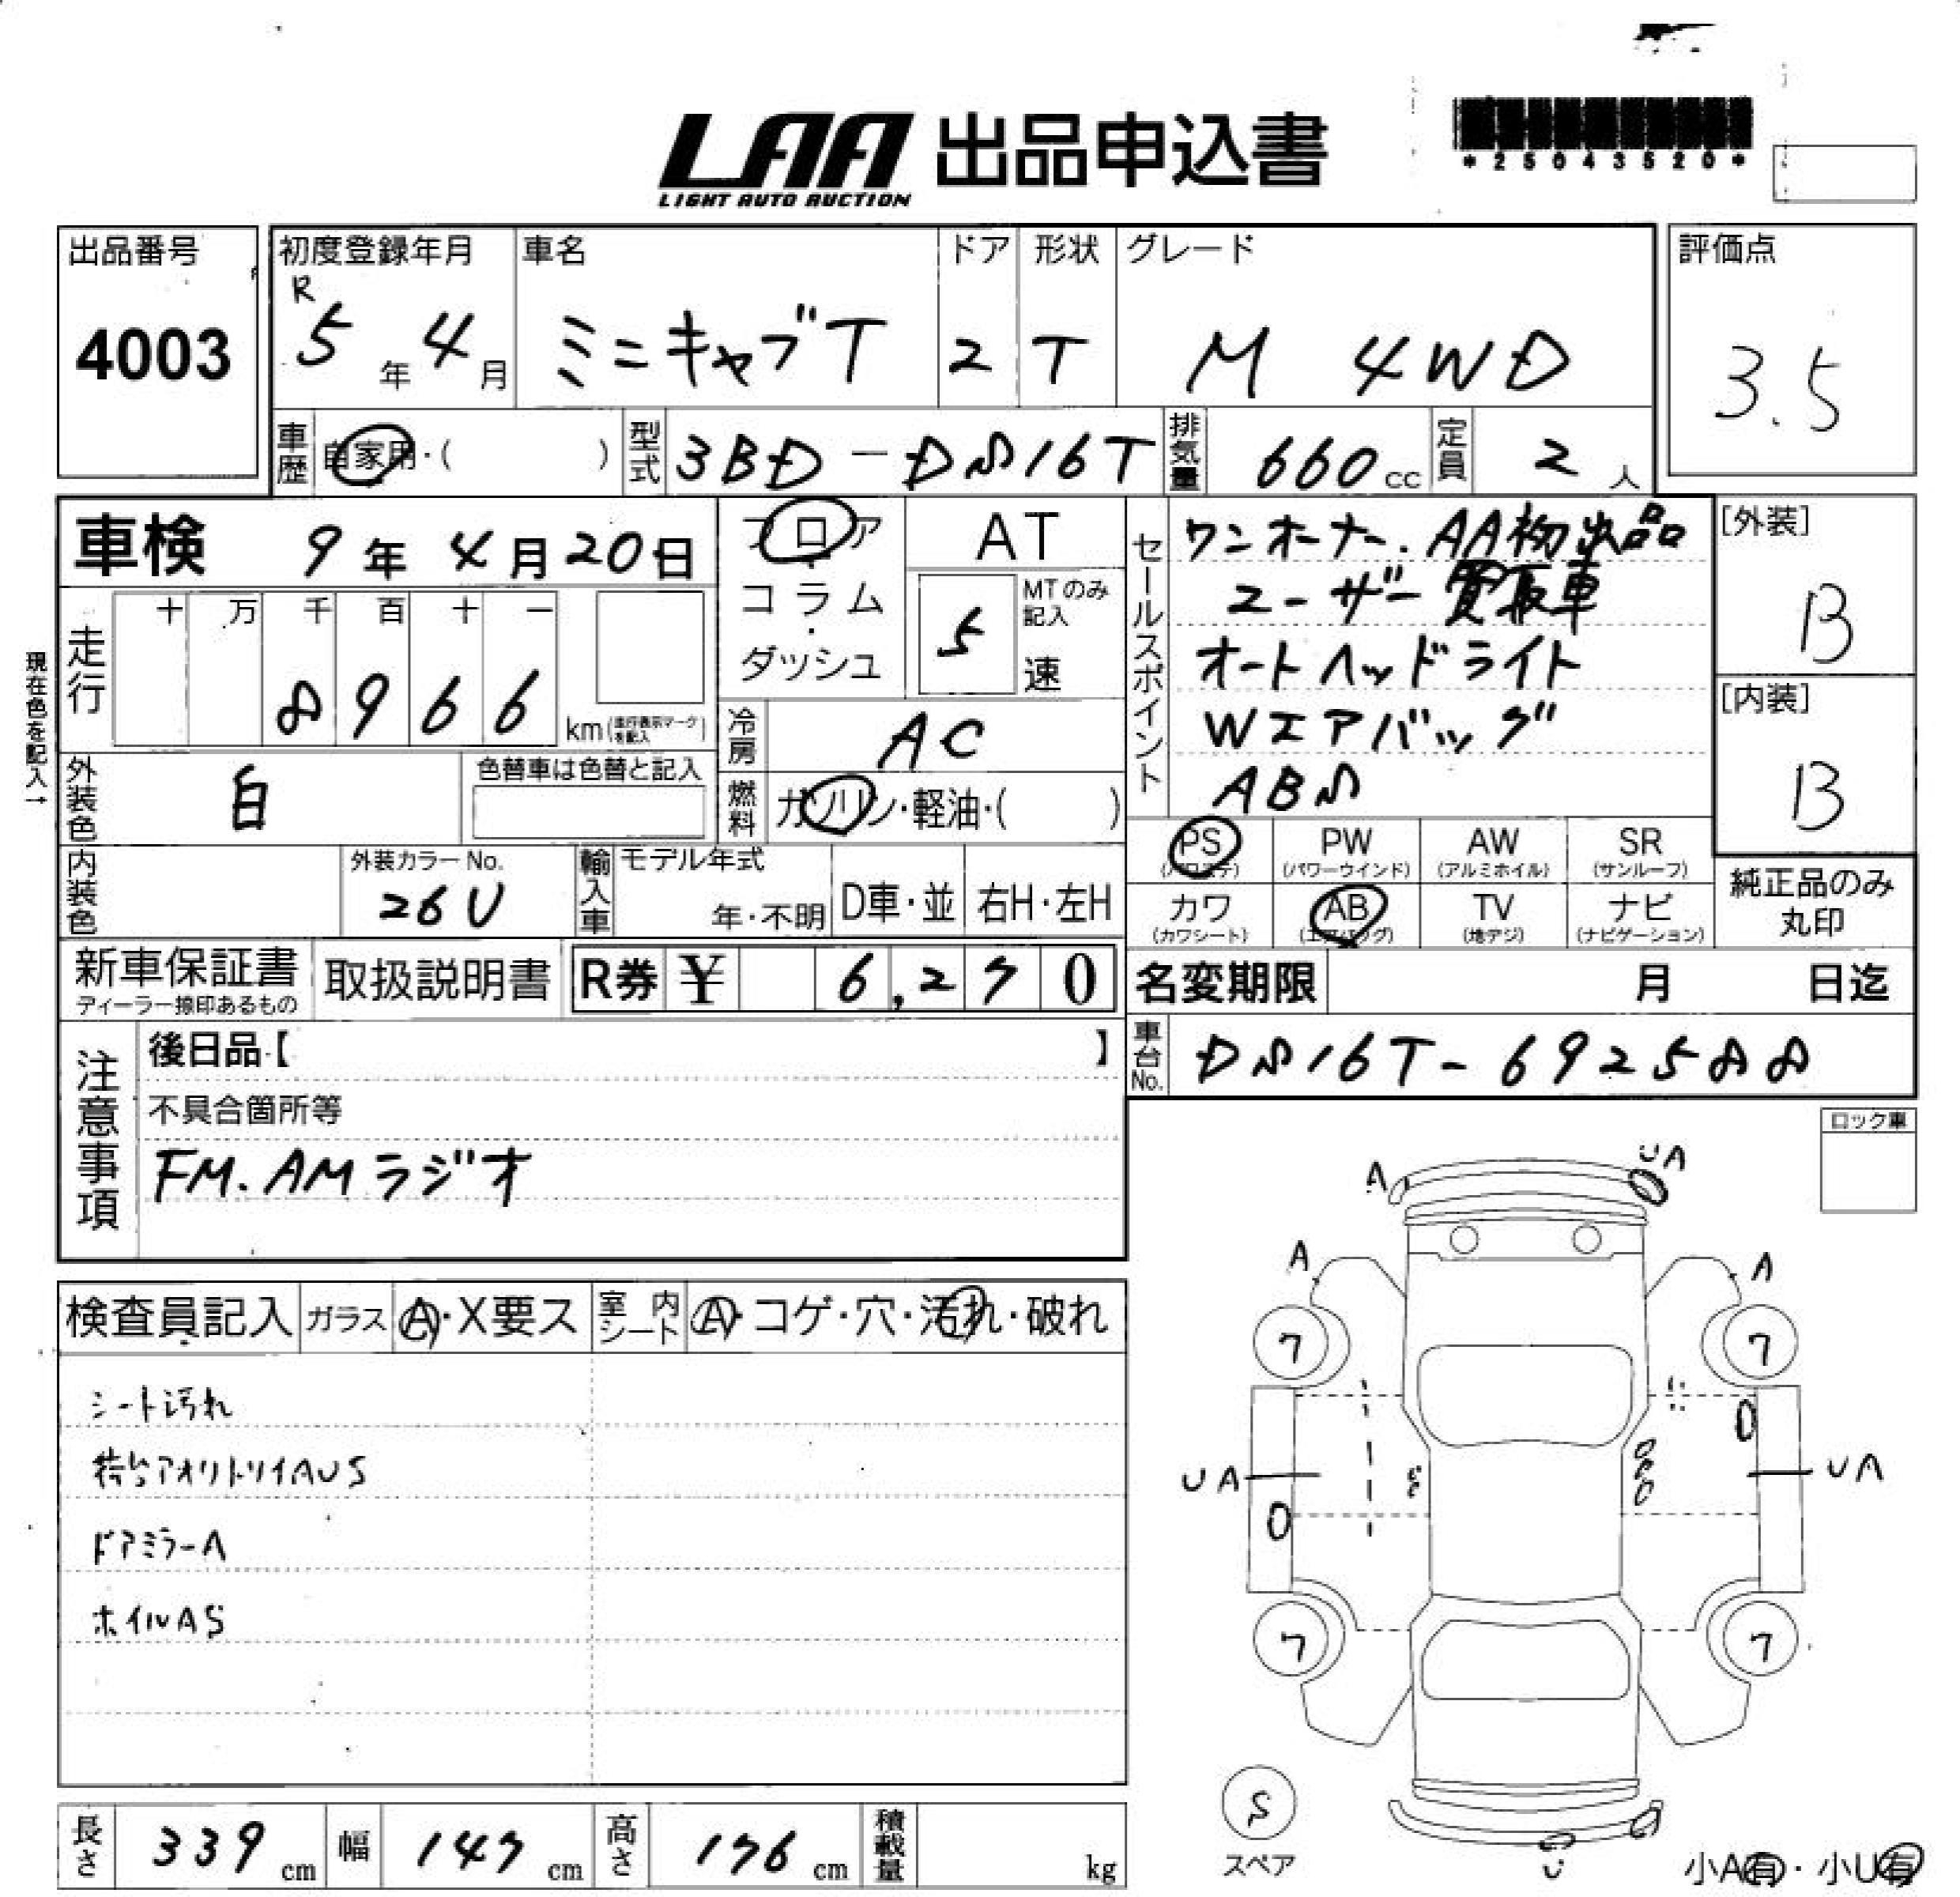 LAA 出品申込書
LIGHT AUTO AUCTION
*25043520*
出品番号
4003
初度登録年月
R
5年4月
車名
ミニキャブT
ドア
2
形状
T
グレード
M 4WD
評価点
3.5
車歴
自家用・( )
型式
3BD-DS16T
排気量
660cc
定員
2人
車検 9年4月20日
フロア・コラム・ダッシュ
AT
MTのみ記入
5速
セールスポイント
ワンオーナー.AA初出品
ユーザー買取車
オートヘッドライト
Wエアバッグ
ABS
[外装]
B
[内装]
B
現在色を記入→
走行
十 万 千 百 十 一
8966
km(走行表示マークを記入)
冷房
AC
外装色
白
色替車は色替と記入
燃料
ガソリン・軽油・( )
PS (パワステ)
PW (パワーウインド)
AW (アルミホイル)
SR (サンルーフ)
カワ (カワシート)
AB (エアバッグ)
TV (地デジ)
ナビ (ナビゲーション)
純正品のみ丸印
内装色
外装カラーNo.
26U
輸入車
モデル年式
年・不明
D車・並
右H・左H
新車保証書
ディーラー捺印あるもの
取扱説明書
R券 ¥ 6,270
名変期限 月 日迄
車台No.
DS16T-692588
注意事項
後日品【 】
不具合箇所等
FM.AMラジオ
ロック車
検査員記入
ガラス A・X要ス
室内シート A・コゲ・穴・汚れ・破れ
シート汚れ
荷台アオリトリイAUS
ドアミラーA
ホイルAS
A
UA
A
A
7
7
UA
UA
7
7
S
スペア
U
小A有・小U有
長さ 339cm
幅 147cm
高さ 176cm
積載量 kg